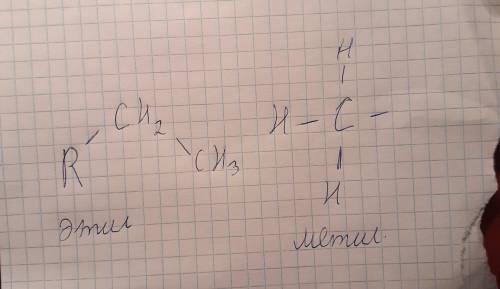 R
CH₂
CH₃
этил
H
H – C –
H
метил